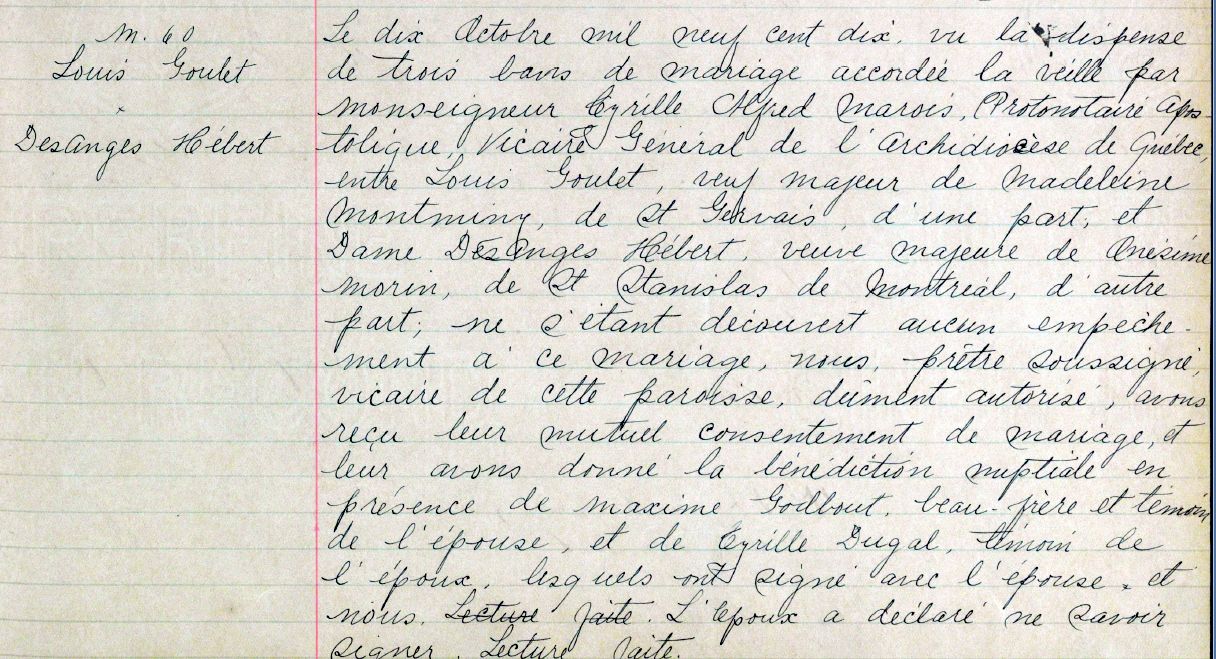 M. 60
Louis Goulet
&
Desanges Hébert
Le dix Octobre mil neuf cent dix, vu la dispense
de trois bans de mariage accordée la veille par
Monseigneur Cyrille Alfred Marois, Protonotaire Apos-
tolique, Vicaire Général de l'Archidiocèse de Québec,
entre Louis Goulet, veuf majeur de Madeleine
Montminy, de St Gervais, d'une part, et
Dame DesAnges Hébert, veuve majeure de Onésime
Morin, de St Stanislas de Montréal, d'autre
part; ne s'étant découvert aucun empêche-
ment à ce mariage, nous, prêtre soussigné,
vicaire de cette paroisse, dûment autorisé, avons
reçu leur mutuel consentement de mariage, et
leur avons donné la bénédiction nuptiale en
présence de Maxime Godbout, beau-frère et témoin
de l'épouse, et de Cyrille Dugal, témoin de
l'époux, lesquels ont signé avec l'épouse et
nous. Lecture faite. L'époux a déclaré ne savoir
signer. Lecture faite.